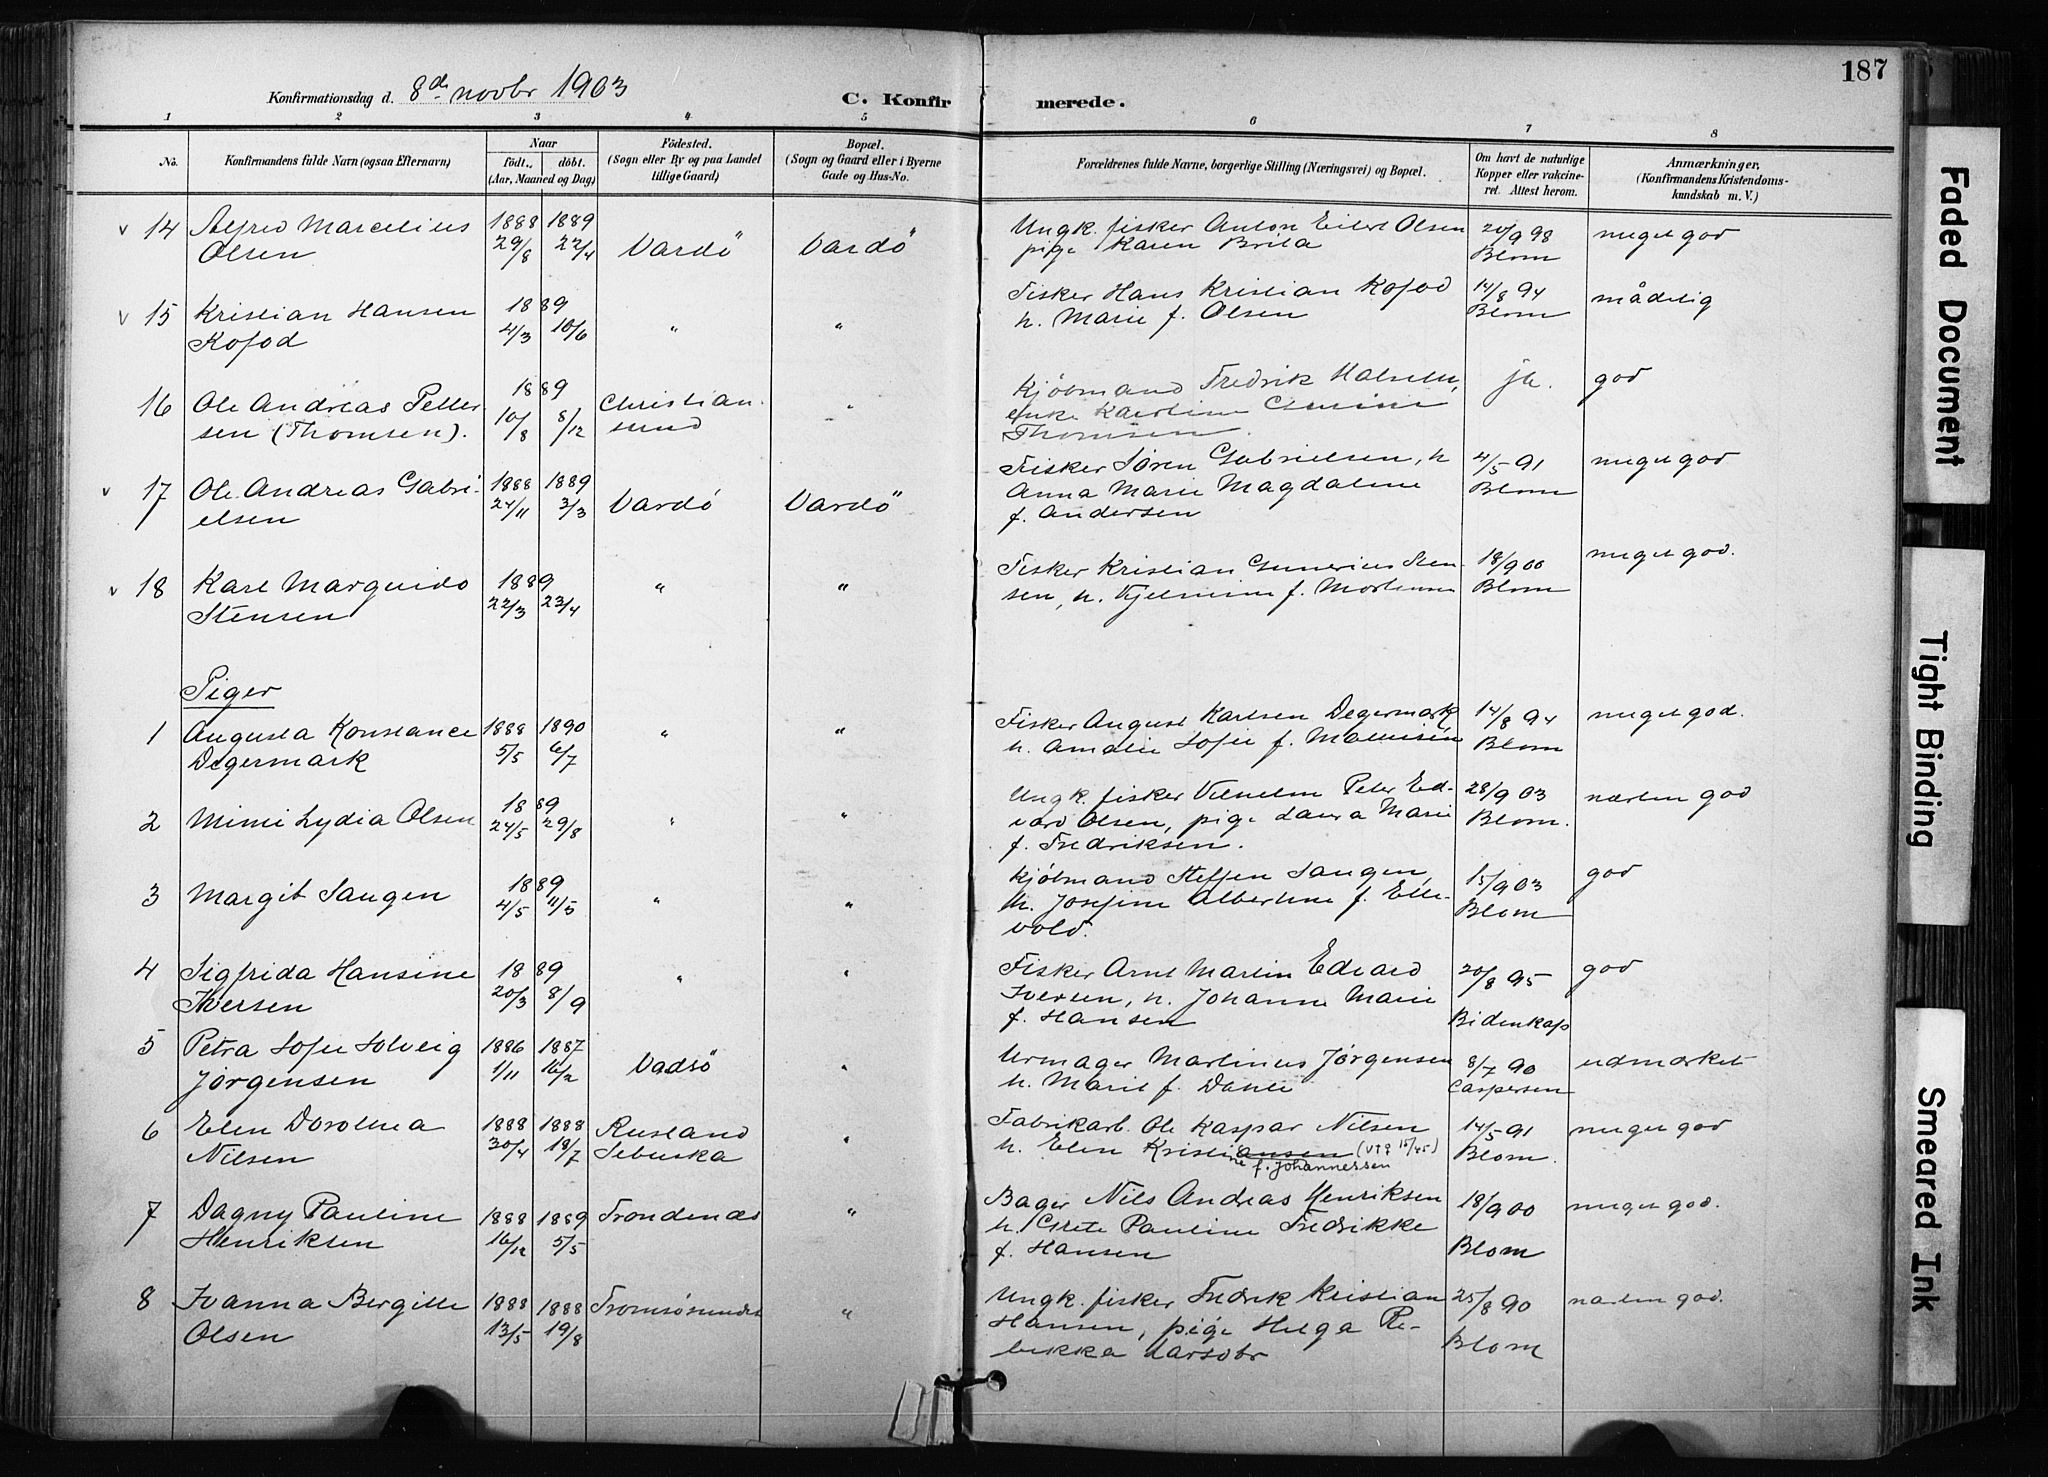 187
Konfirmationsdag d. 8de novbr 1903
C. Konfirmerede.
1 2 3 4 5 6 7 8
No.
Konfirmandens fulde Navn (ogsaa Efternavn)
Naar
født., døbt.
(Aar, Maaned og Dag)
Födested.
(Sogn eller By og paa Landet
tillige Gaard)
Bopæl.
(Sogn og Gaard eller i Byerne
Gade og Hus-No.
Forældrenes fulde Navne, borgerlige Stilling (Næringsvei) og Bopæl.
Om havt de naturlige
Kopper eller vakcine-
ret. Attest herom.
Anmærkninger,
(Konfirmandens Kristendoms-
kundskab m. V.)
v 14 Alfred Marcelius 1888 1889 Ungk. fisker Anton Eilert Olsen 20/9 98 meget god
Olsen 29/8 22/4 Vardö Vardö pige Karen Brita Blom
v 15 Kristian Hansen 1889 Fisker Hans Kristian Kofod 14/8 94 mådelig
Kofod 4/3 10/6 " " h. Marie f. Olsen Blom
16 Ole Andreas Petter 1889 Christian- " Kjøbmand Fredrik ja. god
sen (Thomsen). 10/8 8/12 sund enke
Thomsen
v 17 Ole Andreas Gabri- 1888 1889 Fisker Søren Gabrielsen, h 4/5 91 meget god
elsen 24/11 3/3 Vardö Vardö Anna Marie Magdalene Blom
f. Andersen
v 18 Karl Marquido 1889 " " Fisker Kristian Gunerius Sten- 18/9 00 meget god.
Stensen 22/3 23/4 sen, h. Hjelmine f. Mortensen Blom
Piger
1 Augusta Konstance 1888 1890 " " Fisker August Karlsen Degermark 14/8 94 meget god.
Degermark 5/5 6/7 h. Amalie Sofie f. Blom
2 Mimi Lydia Olsen 1889 " " Ungk. fisker Vilhelm Peter Ed- 28/9 03 næsten god
24/5 29/8 vard Olsen, pige Laura Marie Blom.
f. Fredriksen.
3 Margit Saugen 1889 " " Kjøbmand Steffen Saugen, 15/9 03 god
4/5 11/5 h. Josefine Albertine f. Elle- Blom
vold.
4 Sigfrida Hansine 1889 " " Fisker Arnt Martin Edvard 20/8 95 god
Iversen 20/3 8/9 Iversen, h. Johanne Marie
f. Hansen Bidenkap
5 Petra Sofie Solveig 1886 1887 Vadsö " Urmager Martinus Jørgensen 8/7 90 udmærket
Jørgensen 1/11 16/2 h. Marit f. Dahle Caspersen
6 Elen Dorothea 1888 1888 Rusland " Fabrikarb. Ole Kaspar Nilsen 14/5 91 meget god
Nilsen 30/4 18/7 Sebuska h. Elen Kristiansen Blom.
ne f. Johannessen
7 Dagny Pauline 1888 1889 Trondenæs " Bager Nils Andreas Henriksen 18/9 00 meget god.
Henriksen 16/12 5/5 h. Grete Pauline Fredrikke
f. Hansen Blom
8 Ivanna Bergitte 1888 1888 Tromsösundet " Ungk. fisker Fredrik Kristian 25/8 90 næsten god.
Olsen 13/5 19/8 Hansen, pige Helga Re-
bekka Larsdtr Blom
Faded Document
Tight Binding
Smeared Ink